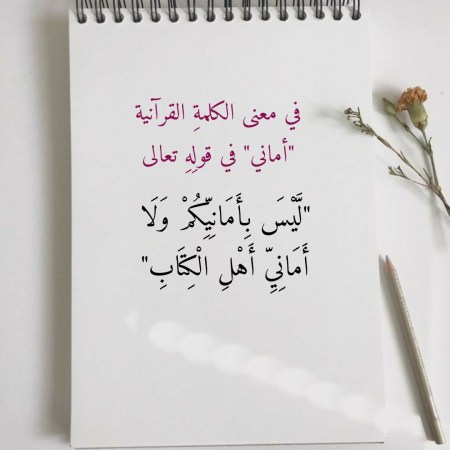 في معنى الكلمةِ القرآنية
"أماني" في قولِهِ تعالى
"لَّيْسَ بِأَمَانِيِّكُمْ وَلَا
أَمَانِيِّ أَهْلِ الْكِتَابِ"